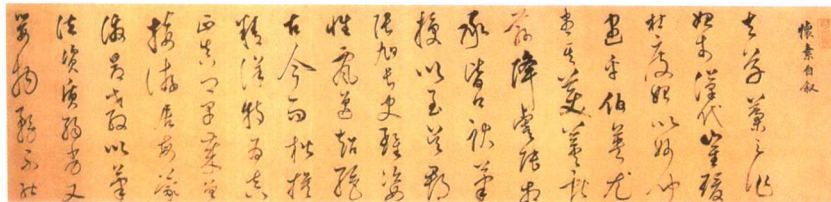 懷素自叙
夫草藁之作
起於漢代崔瑗
杜度始以妙聞
迨乎伯英尤
擅其美羲獻
茲降虞陸相
承皆口訣筆
授以至吳郡
張旭長史雖姿
性顛逸超絕
古今而楷模
精詳特為真
正真卿早歲常
接游居屢蒙
激昂教以筆
法資質劣弱又
嬰物務不能